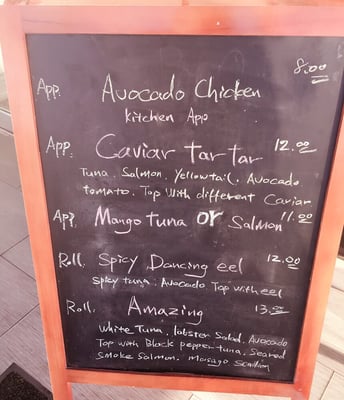 8.00
App. Avocado Chicken
Kitchen App
App. Caviar tartar 12.00
Tuna. Salmon. Yellowtail. Avocado
tomato. Top With different Caviar
App. Mango tuna or Salmon 11.00
Roll. Spicy Dancing eel 12.00
Spicy tuna. Avocado Top with eel
Roll. Amazing 13.00
White Tuna. lobster Salad. Avocado
Top with Black pepper tuna. Seared
Smoke Salmon. Masago Scallion